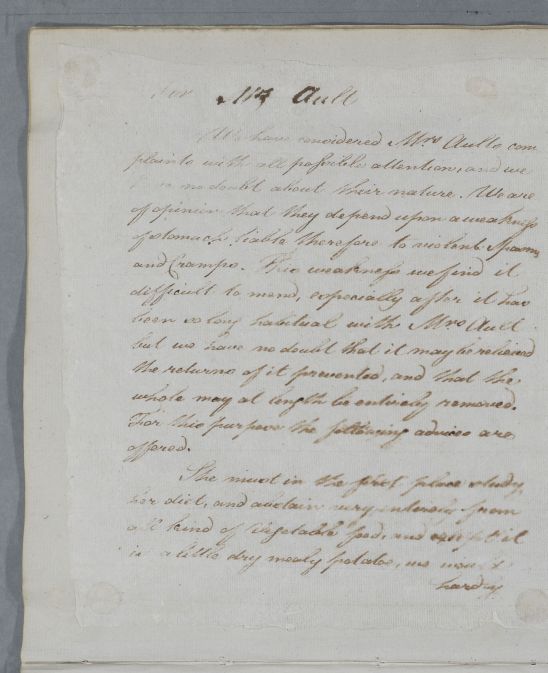 For Mrs Ault
We have considered Mrs Aults com
plaints with all possible attention, and we
have no doubt about their nature. We are
of opinion that they depend upon a weakness
of stomach, liable therefore to violent Spasms
and Cramps. This weakness we find it
difficult to mend, especially after it has
been so long habitual with Mrs Ault
but we have no doubt that it may be relieved
the returns of it prevented, and that the
whole may at length be entirely removed.
For this purpose the following advices are
offered.
She must in the first place study
her diet, and abstain very entirely from
all kind of Vegetable food, and except it
is a little dry mealy potatoe, we would
hardly